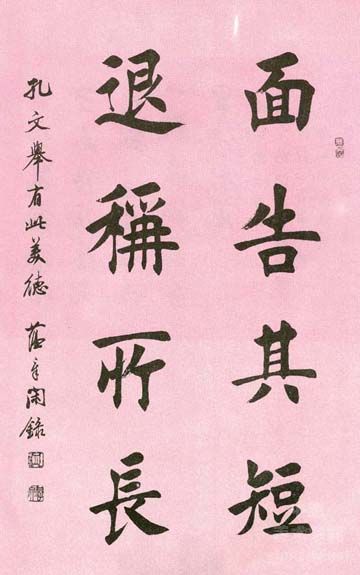 面告其短
退稱所長
孔文舉有此美德 錄